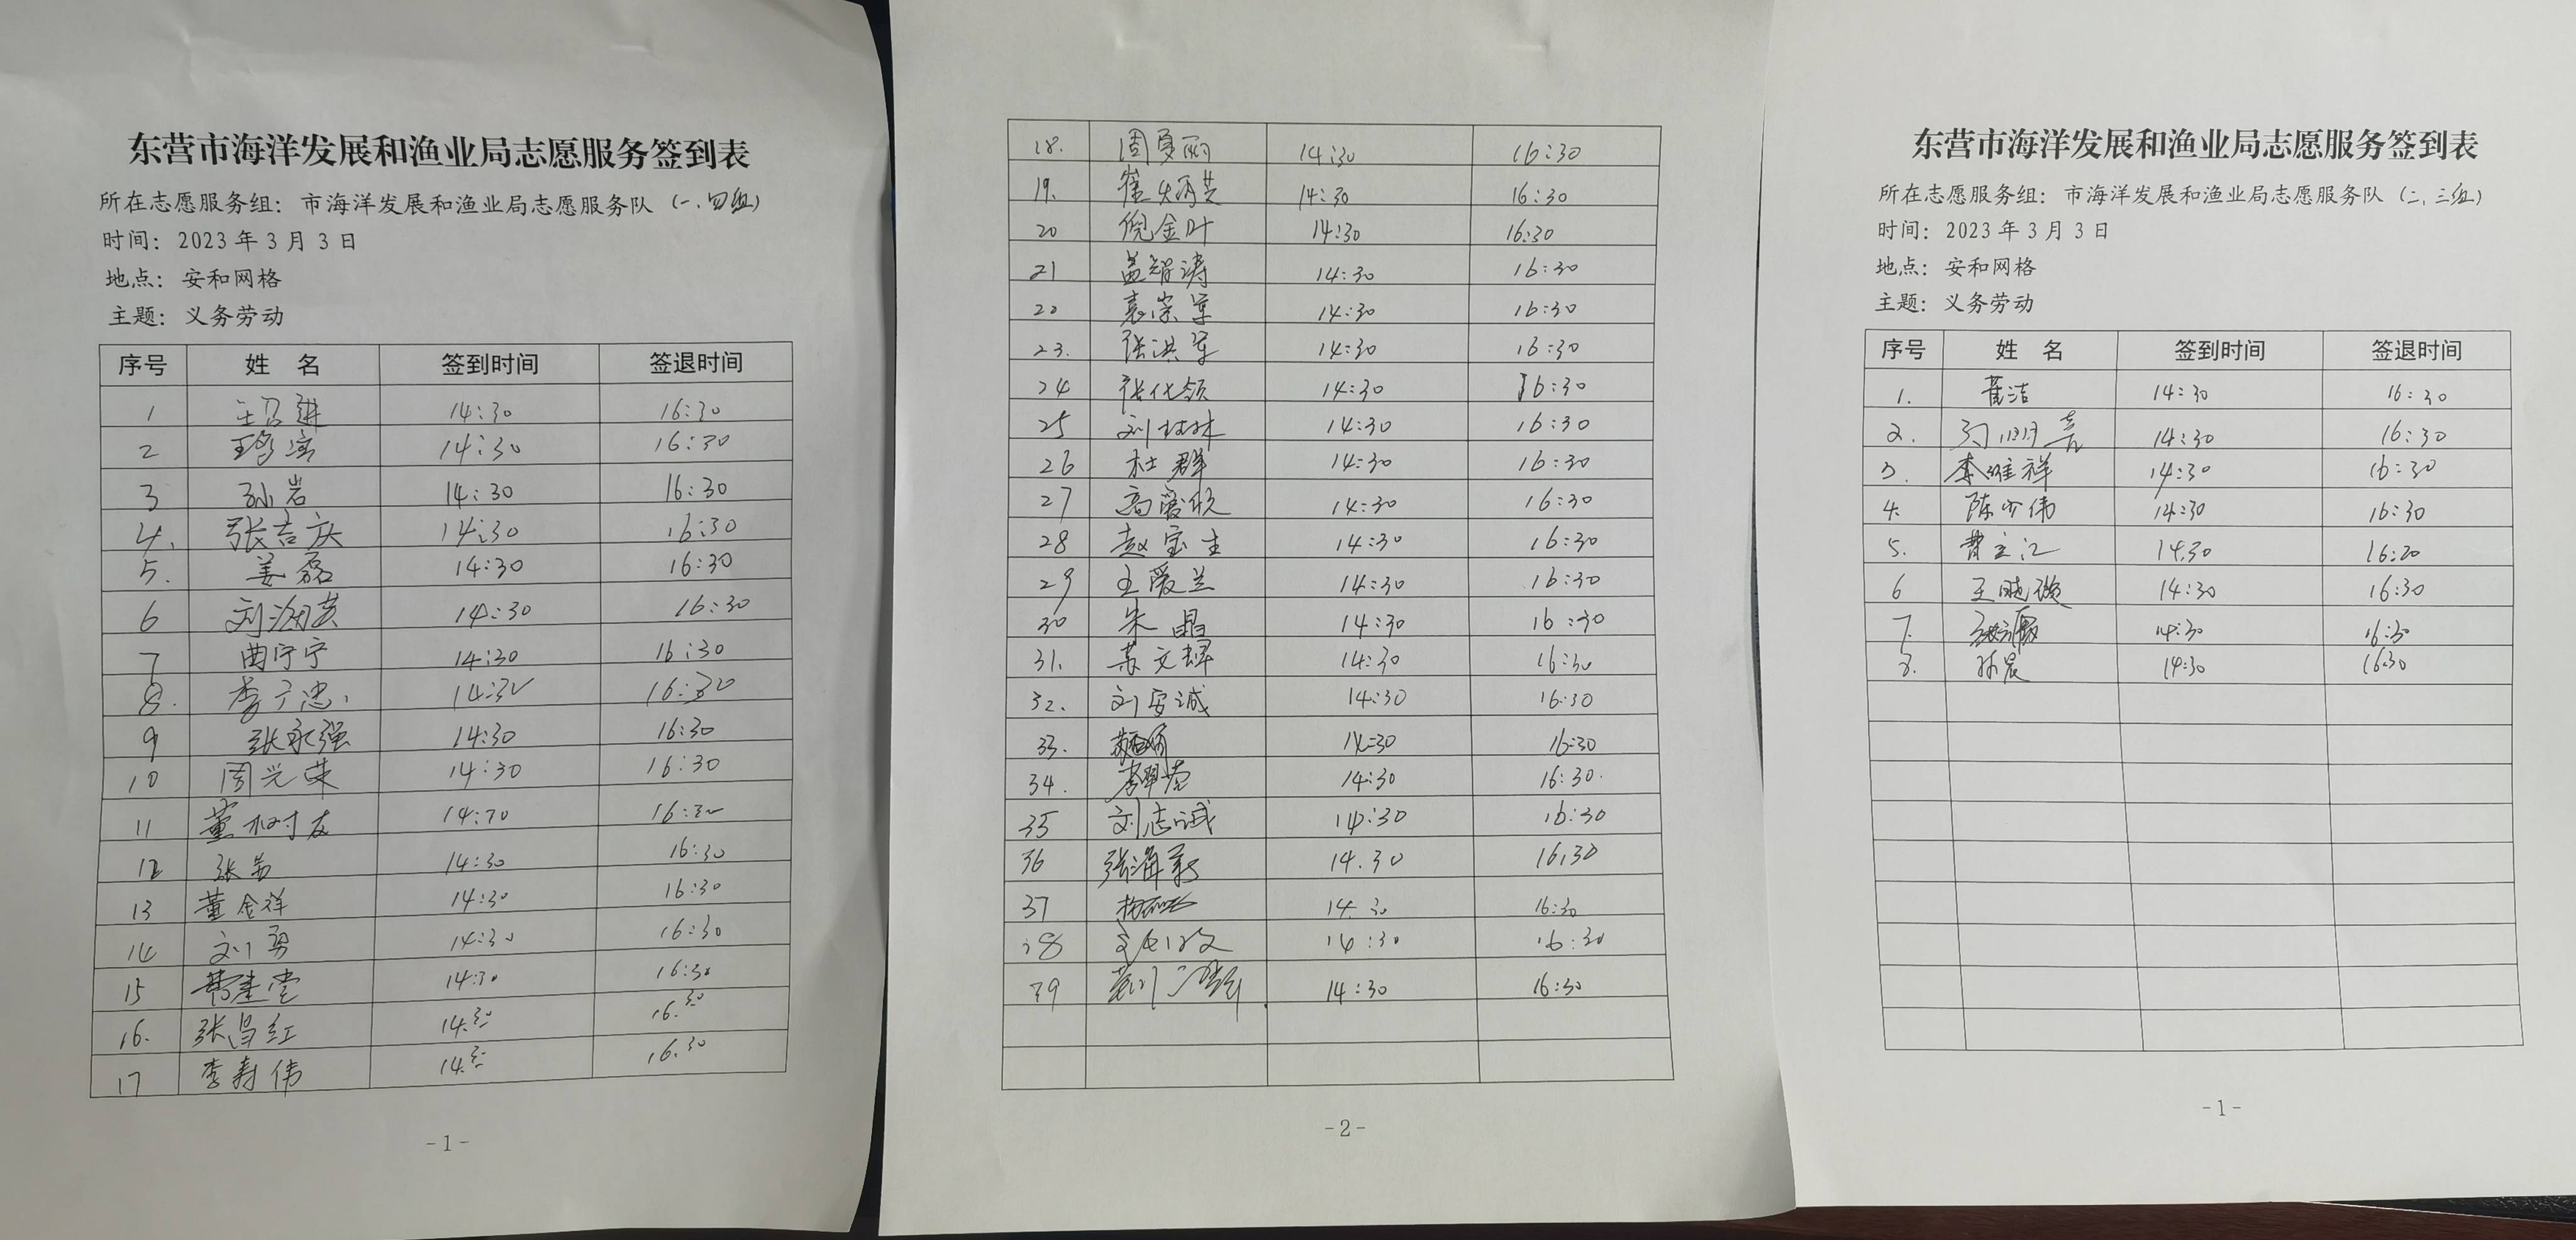 东营市海洋发展和渔业局志愿服务签到表
所在志愿服务组：市海洋发展和渔业局志愿服务队（一、四组）
时间：2023年3月3日
地点：安和网格
主题：义务劳动
序号 姓 名 签到时间 签退时间
1 14:30 16:30
2 14:30 16:30
3 孙岩 14:30 16:30
4. 张吉庆 14:30 16:30
5. 姜磊 14:30 16:30
6 刘海英 14:30 16:30
7 曲宁宁 14:30 16:30
8. 李广忠 14:30 16:30
9 张永强 14:30 16:30
10 周光荣 14:30 16:30
11 董树友 14:30 16:30
12 张芳 14:30 16:30
13 董金祥 14:30 16:30
14 刘勇 14:30 16:30
15 14:30 16:30
16. 张昌红 14:30 16:30
17 李寿伟 14:30 16:30
-1-
18. 周夏丽 14:30 16:30
19. 崔炳芸 14:30 16:30
20 倪金叶 14:30 16:30
21 盖智涛 14:30 16:30
22 袁宗军 14:30 16:30
23. 张洪军 14:30 16:30
24 张化领 14:30 16:30
25 刘林林 14:30 16:30
26 杜群 14:30 16:30
27 高爱欣 14:30 16:30
28 赵宝生 14:30 16:30
29 王爱兰 14:30 16:30
30 朱晶 14:30 16:30
31. 苏文辉 14:30 16:30
32. 刘安诚 14:30 16:30
33. 14:30 16:30
34. 14:30 16:30.
35 刘志诚 14:30 16:30
36 张海 14.30 16.30
37 14:30 16:30
38 14:30 16:30
39 14:30 16:30
-2-
东营市海洋发展和渔业局志愿服务签到表
所在志愿服务组：市海洋发展和渔业局志愿服务队（二、三组）
时间：2023年3月3日
地点：安和网格
主题：义务劳动
序号 姓 名 签到时间 签退时间
1. 董洁 14:30 16:30
2. 明亮 14:30 16:30
3. 李维祥 14:30 16:30
4. 陈少伟 14:30 16:30
5. 曹立江 14:30 16:20
6 王晓 14:30 16:30
7. 14:30 16:30
8. 孙晨 14:30 16:30
-1-